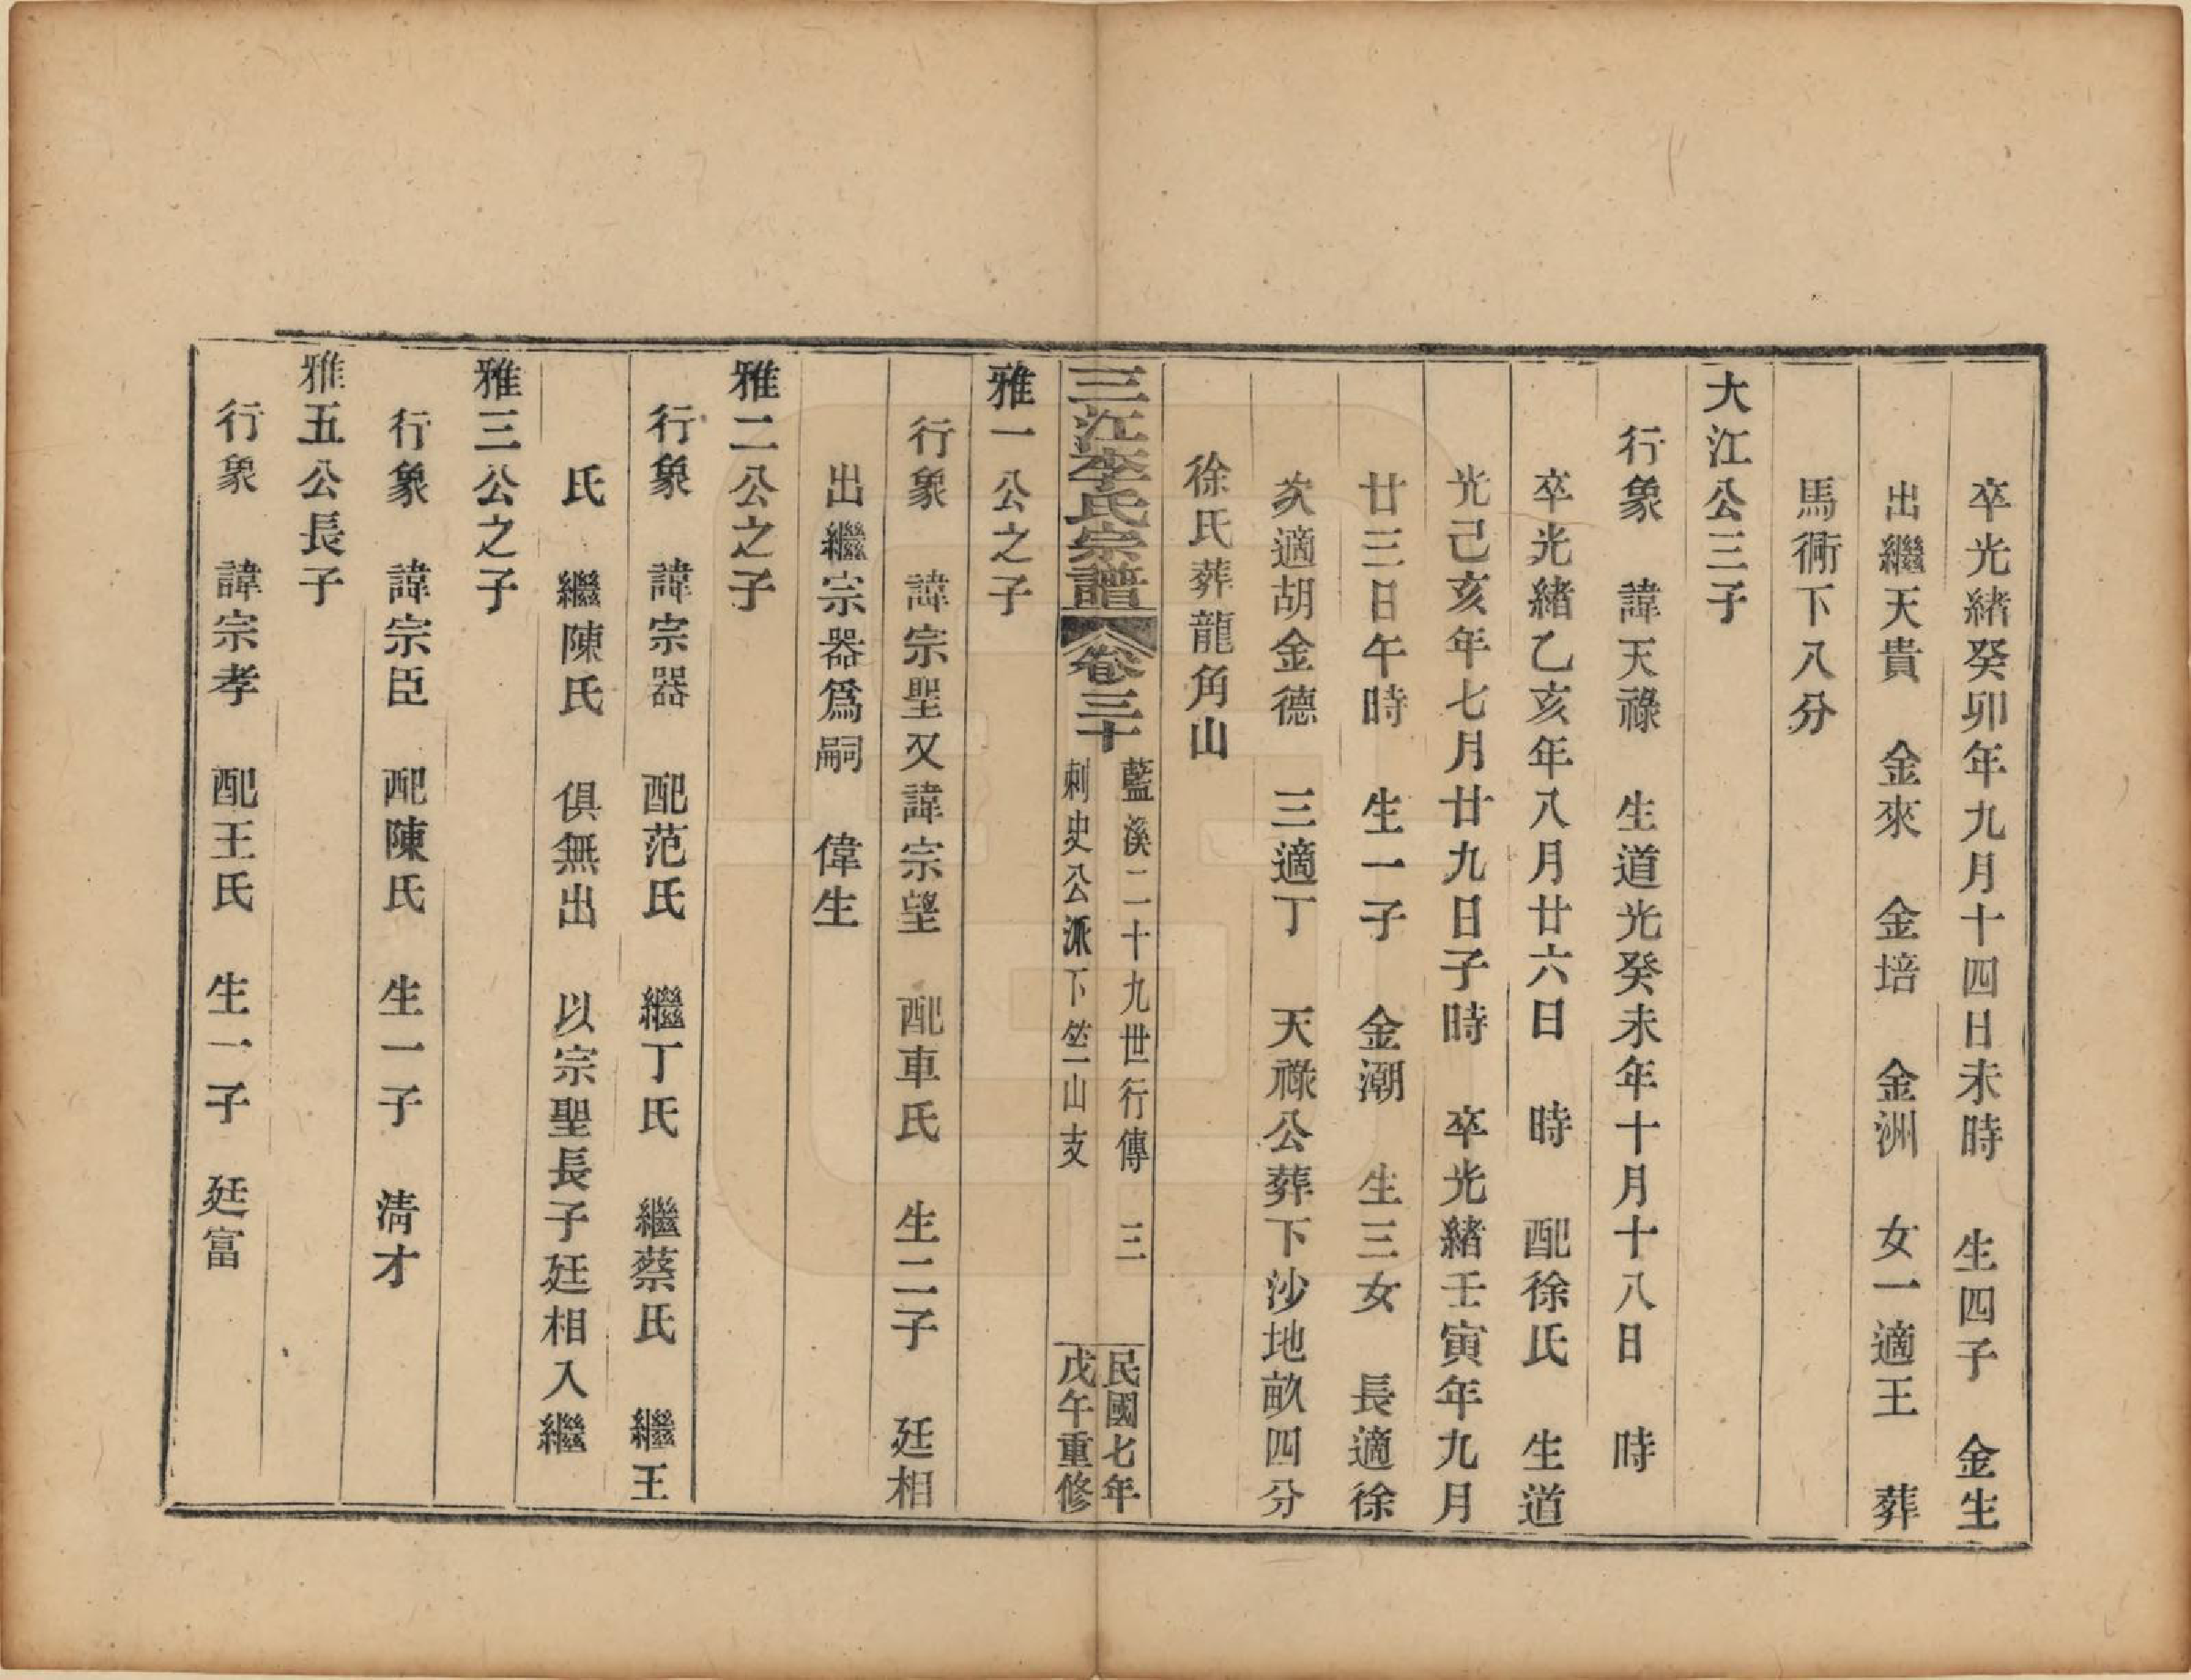 卒光緒癸卯年九月十四日未時　生四子　金生
出繼天貴　金來　金培　金洲　女一適王　葬
馬衕下八分
大江公三子
行象　諱天祿　生道光癸未年十月十八日　時
卒光緒乙亥年八月廿六日　時　配徐氏　生道
光己亥年七月廿九日子時　卒光緒壬寅年九月
廿三日午時　生一子　金潮　生三女　長適徐
次適胡金德　三適丁　天祿公葬下沙地畝四分
徐氏葬龍角山
三江李氏宗譜　卷三十　藍溪二十九世行傳　三
刺史公派下竺山支
民國七年
戊午重修
雅一公之子
行象　諱宗聖又諱宗望　配車氏　生二子　廷相
出繼宗器爲嗣　偉生
雅二公之子
行象　諱宗器　配范氏　繼丁氏　繼蔡氏　繼王
氏　繼陳氏　俱無出　以宗聖長子廷相入繼
雅三公之子
行象　諱宗臣　配陳氏　生一子　清才
雅五公長子
行象　諱宗孝　配王氏　生一子　廷富